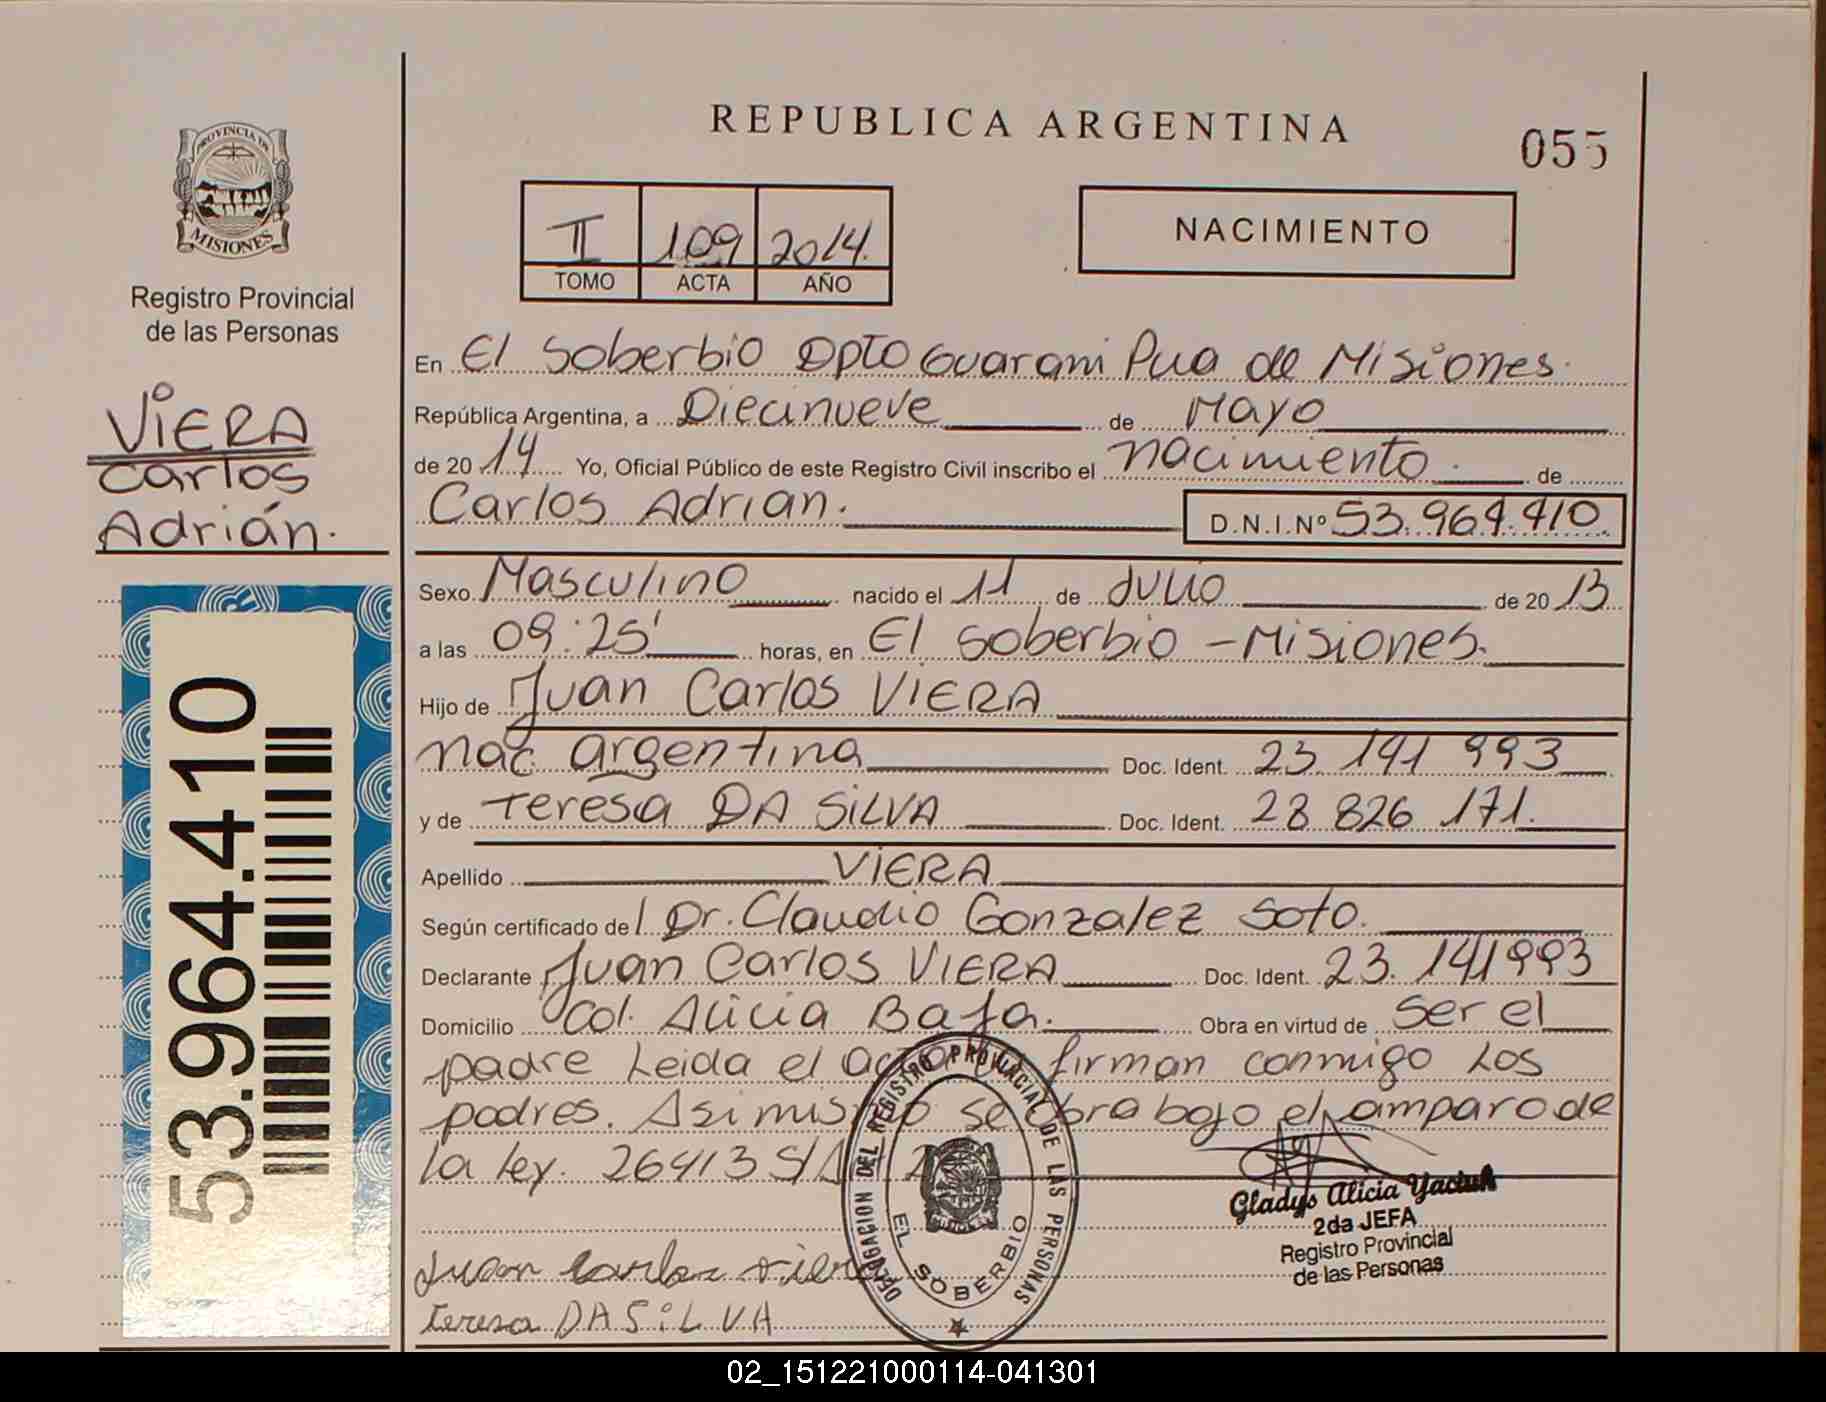 REPUBLICA ARGENTINA
055
PROVINCIA DE
MISIONES
Registro Provincial
de las Personas
VIERA
Carlos
Adrián.
53.964.410
II 109 2014.
TOMO ACTA AÑO
NACIMIENTO
En El Soberbio Dpto Guarani Pcia de Misiones.
República Argentina, a Diecinueve de Mayo
de 20 14 Yo, Oficial Público de este Registro Civil inscribo el nacimiento. de
Carlos Adrian. D.N.I.Nº 53.964.410.
Sexo Masculino nacido el 11 de Julio de 20 13
a las 09:25' horas, en El Soberbio - Misiones.
Hijo de Juan Carlos VIERA
nac. argentina Doc. Ident. 23 141 993
y de Teresa DA SILVA Doc. Ident. 28 826 171.
Apellido VIERA
Según certificado de l Dr. Claudio Gonzalez Soto.
Declarante Juan Carlos VIERA Doc. Ident. 23.141993
Domicilio Col. Alicia Baja. Obra en virtud de Ser el
padre Leida el acta firman conmigo Los
padres. Asimismo se obra bajo el amparo de
la ley. 26413
DELEGACION DEL REGISTRO PROVINCIAL DE LAS PERSONAS
EL SOBERBIO
Gladys Alicia
2da JEFA
Registro Provincial
de las Personas
Juan Carlos Viera
Teresa DA SiLVA
02_151221000114-041301